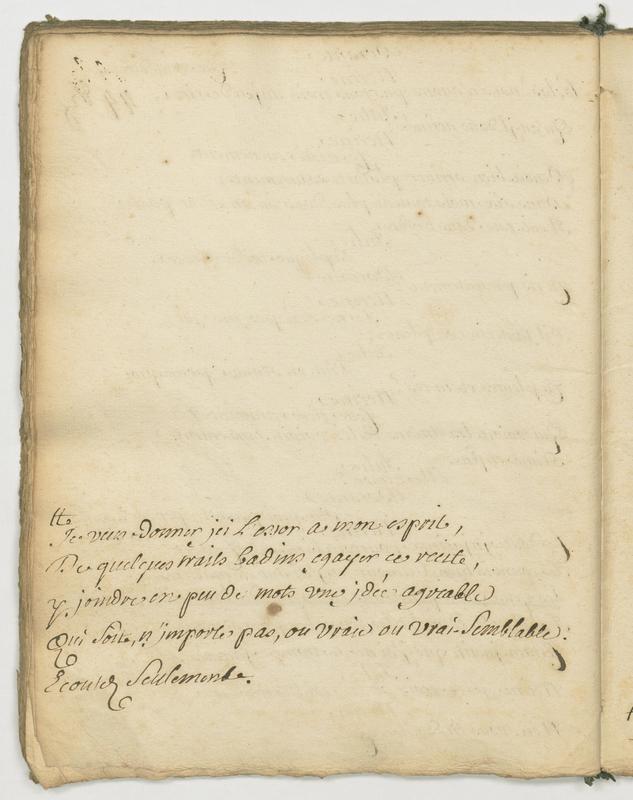 tt
Je veux donner jci L'essor a mon esprit,
De quelques traits badins egayer ce recit,
y joindre en peu de mots vne jdée agreable
Qui soit, n'jmporte pas, ou vraie ou vrai-semblable.
Ecoutez seulement.